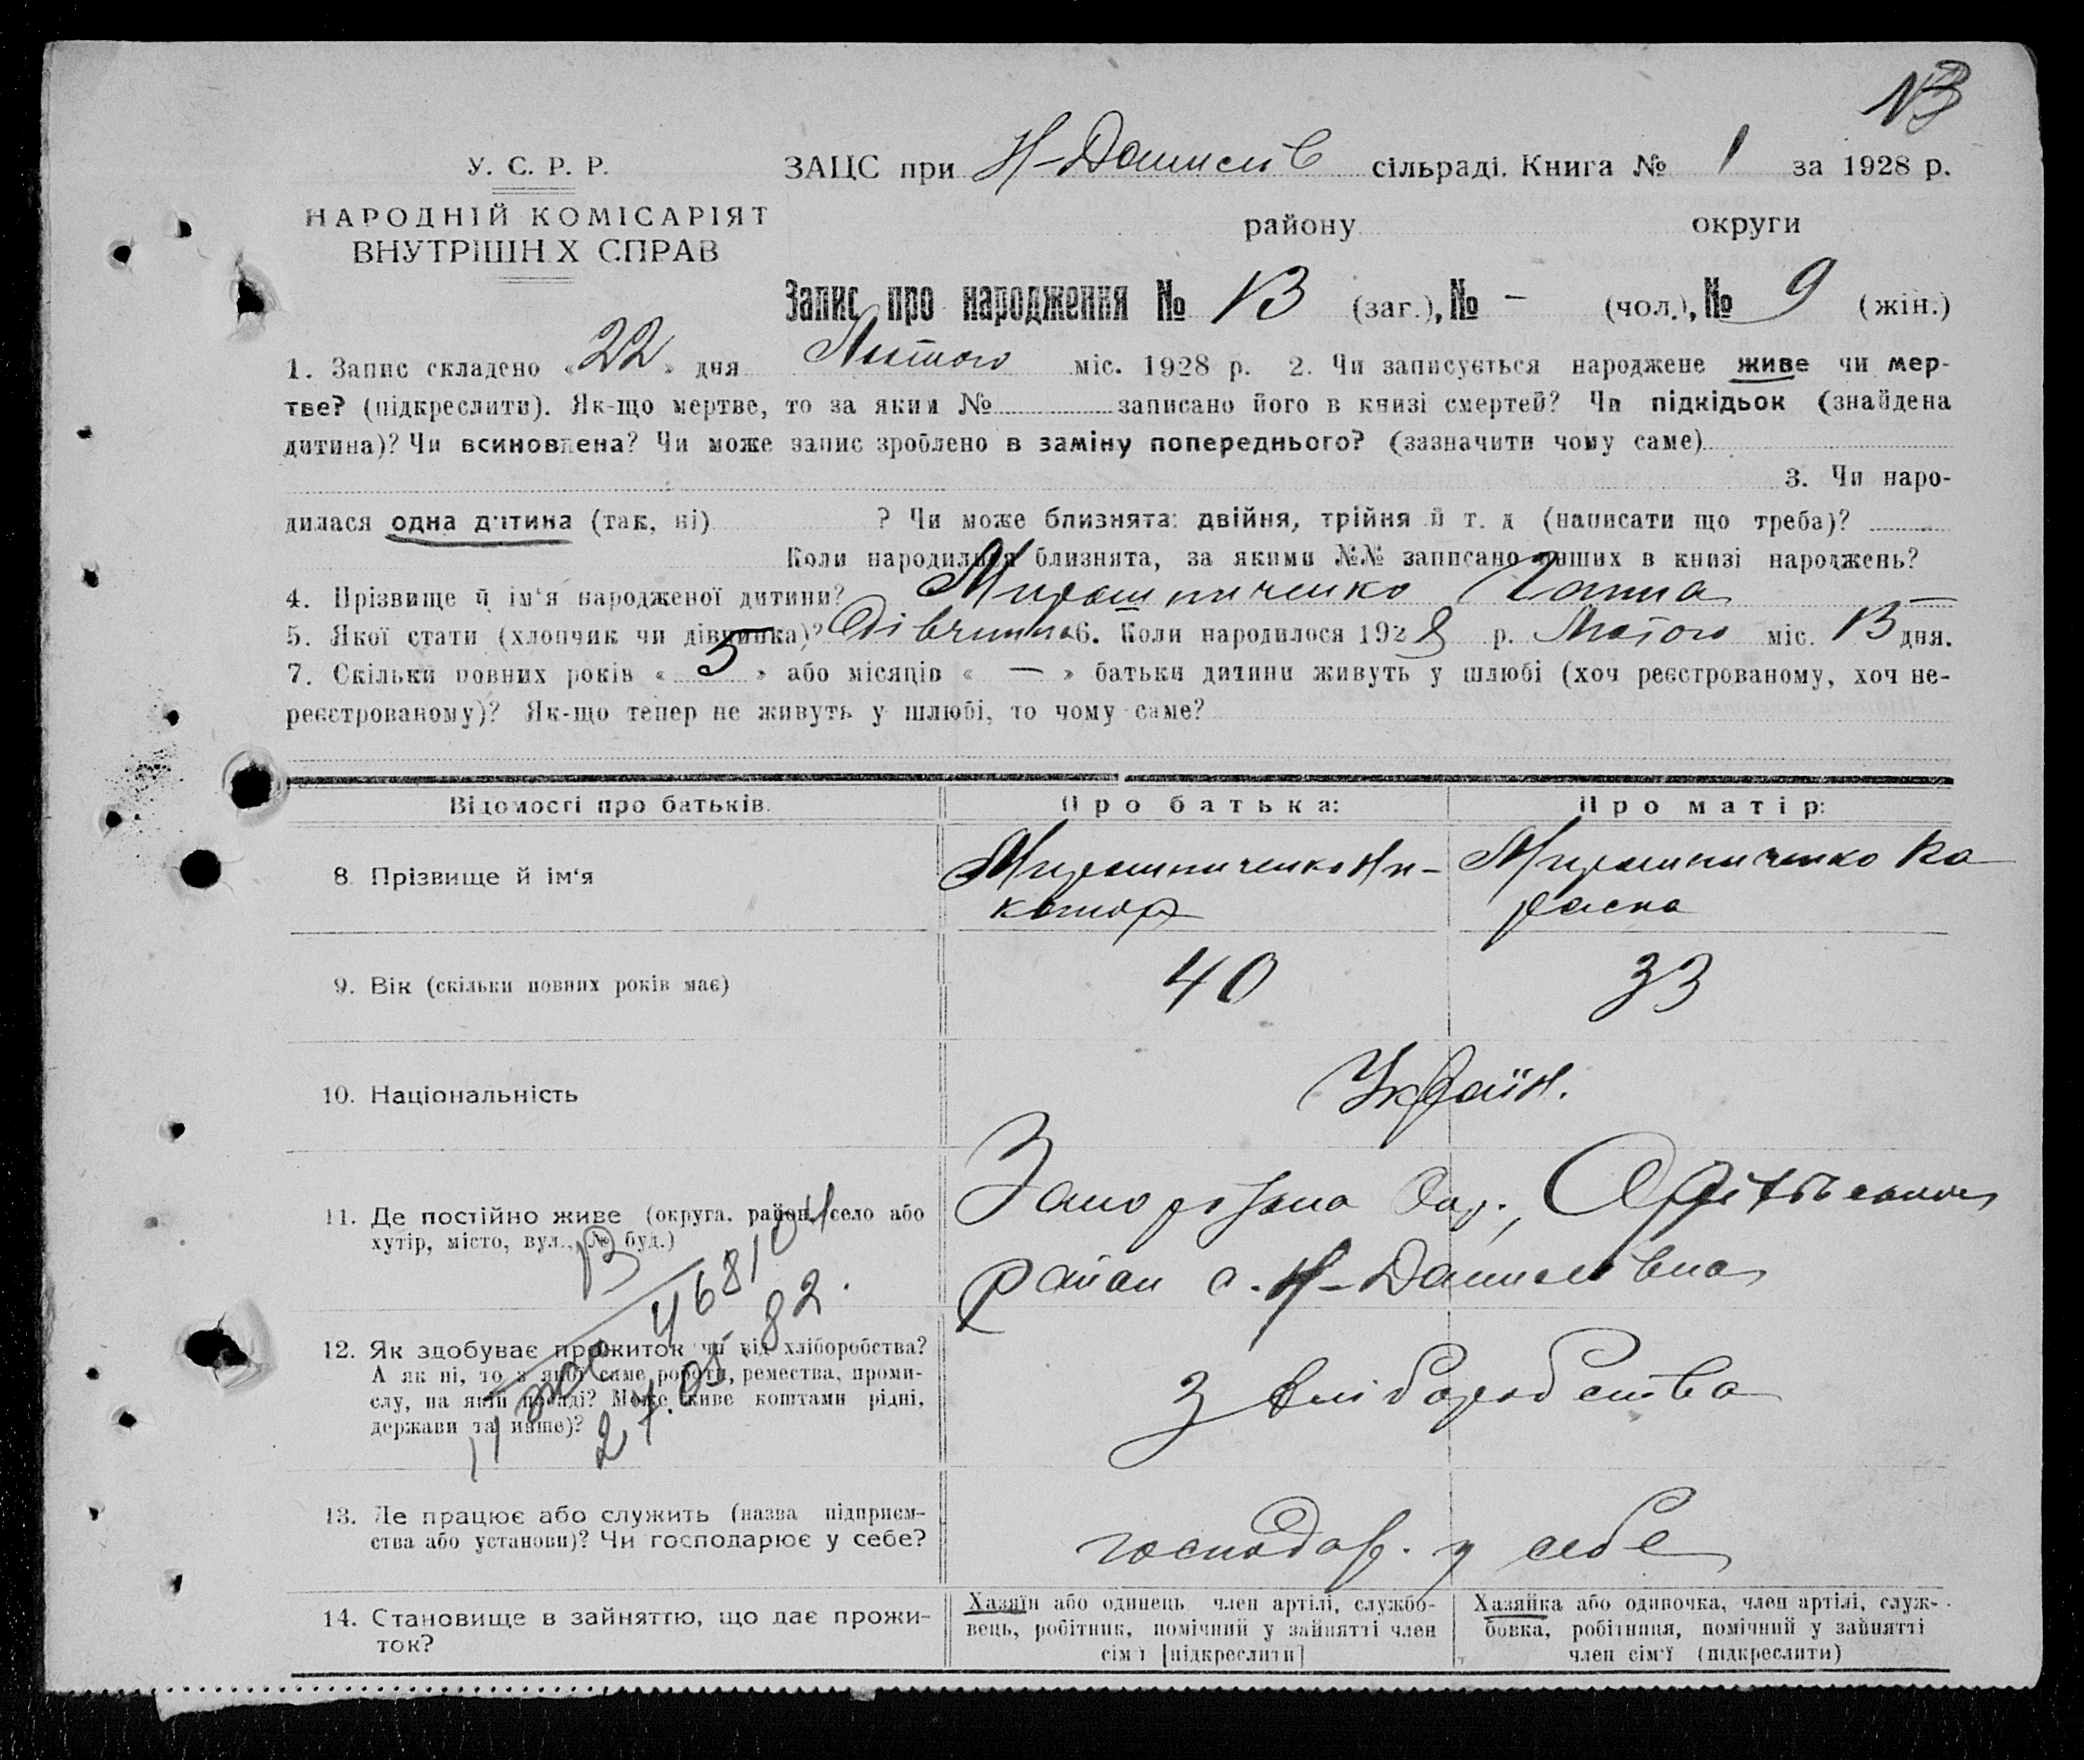 13
У. С. Р. Р.
НАРОДНІЙ КОМІСАРІЯТ
ВНУТРІШН Х СПРАВ
ЗАЦС при Н-Данилів сільраді. Книга № 1 за 1928 р.
району округи
Запис про народження № 13 (заг.), № – (чол.), № 9 (жін.)
1. Запис складено « 22 » дня Лютого міс. 1928 р. 2. Чи записується народжене живе чи мер-
тве? (підкреслити). Як-що мертве, то за яким № записано його в книзі смертей? Чи підкідьок (знайдена
дитина)? Чи всиновлена? Чи може запис зроблено в заміну попереднього? (зазначити чому саме)
3. Чи наро-
дилася одна дитина (так, ні) ? Чи може близнята: двійня, трійня й т. д (написати що треба)?
Коли народилися близнята, за якими №№ записано инших в книзі народжень?
4. Прізвище й ім‘я народженої дитини? Мирошниченко Ганна
5. Якої стати (хлопчик чи дівчинка)? Дівчина 6. Коли народилося 1928 р. Лютого міс. 13 дня.
7. Скільки повних років « 5 » або місяців « — » батьки дитини живуть у шлюбі (хоч реєстрованому, хоч не-
реєстрованому)? Як-що тепер не живуть у шлюбі, то чому саме?
Відомості про батьків. Про батька: Про матір:
8. Прізвище й ім‘я Мирошниченко Ни- Мирошниченко
9. Вік (скільки повних років має) 40 33
10. Національність Україн.
11. Де постійно живе (округа, район, село або
хутір, місто, вул., № буд.)
Запорізька Окр.,
район с. Н-Данилівка
12. Як здобуває прожиток чи від хліборобства?
А як ні, то з якої саме роботи, ремества, проми-
слу, на якій посаді? Може живе коштами рідні,
держави та инше)?
З хліборобства
27.05.82.
13. Де працює або служить (назва підприєм-
ства або установи)? Чи господарює у себе?
господар. у себе
14. Становище в зайняттю, що дає прожи-
ток?
Хазяїн або одинець член артілі, службо-
вець, робітник, помічний у зайнятті член
сім‘ї [підкреслити]
Хазяйка або одиночка, член артілі, служ-
бовка, робітниця, помічний у зайнятті
член сім‘ї (підкреслити)